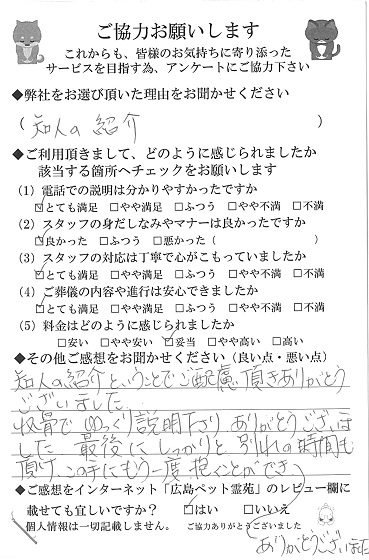 ご協力お願いします
これからも、皆様のお気持ちに寄り添った
サービスを目指す為、アンケートにご協力下さい
◆弊社をお選び頂いた理由をお聞かせください
( 知人の紹介 )
◆ご利用頂きまして、どのように感じられましたか
該当する箇所へチェックをお願いします
(1) 電話での説明は分かりやすかったですか
☑とても満足 □やや満足 □ふつう □やや不満 □不満
(2) スタッフの身だしなみやマナーは良かったですか
☑良かった □ふつう □悪かった ( )
(3) スタッフの対応は丁寧で心がこもっていましたか
☑とても満足 □やや満足 □ふつう □やや不満 □不満
(4) ご葬儀の内容や進行は安心できましたか
☑とても満足 □やや満足 □ふつう □やや不満 □不満
(5) 料金はどのように感じられましたか
□安い □やや安い ☑妥当 □やや高い □高い
◆その他ご感想をお聞かせください（良い点・悪い点）
知人の紹介ということでご配慮頂きありがとう
ございました。
収骨でゆっくり説明下さりありがとうございま
した 最後にしっかりと別れの時間も
頂け この手にもう一度抱くことができ
◆ご感想をインターネット「広島ペット霊苑」のレビュー欄に
載せても宜しいですか？ ☑はい □いいえ
個人情報は一切記載しません。 ご協力ありがとうございました
ありがとうございました